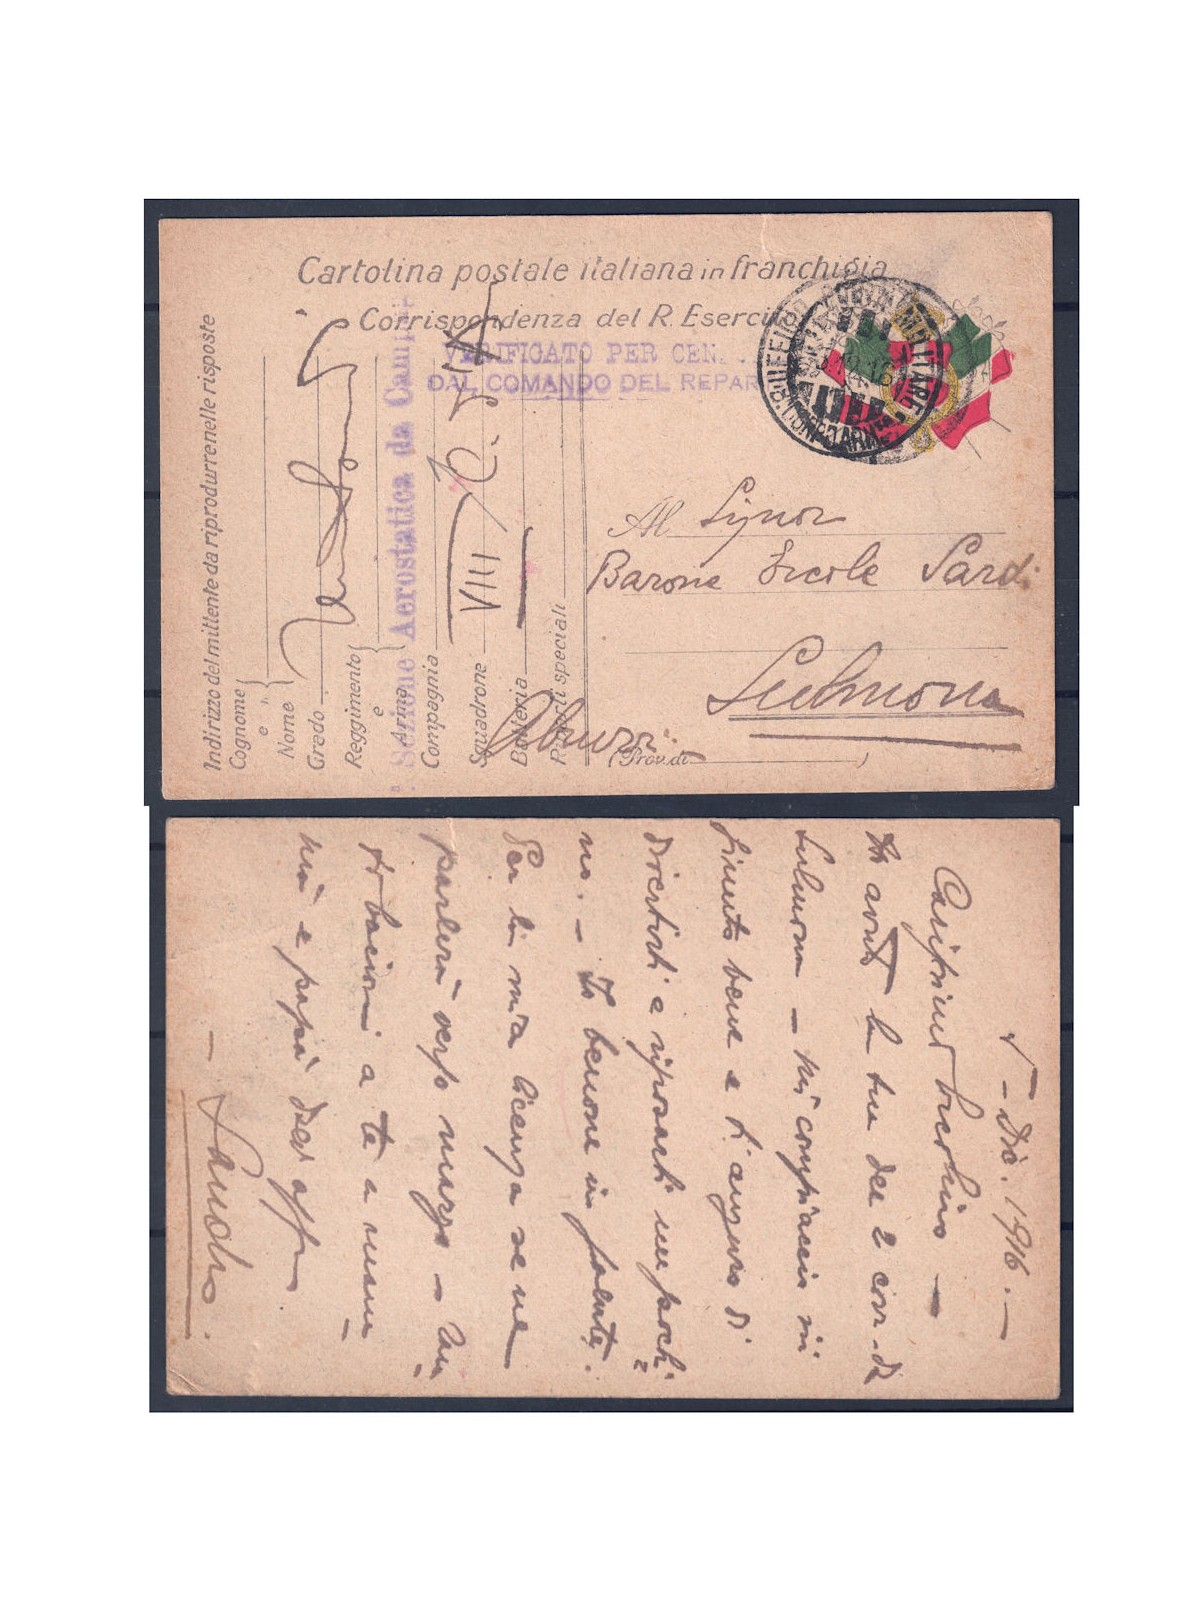 Cartolina postale italiana in franchigia
Corrispondenza del R. Esercito
VERIFICATO PER CEN
DAL COMANDO DEL REPAR
UFFICIO POSTA MILITARE
Indirizzo del mittente da riprodurre nelle risposte
Cognome
e
Nome
Grado
Reggimento
e
Arma
Sezione Aerostatica da Camp
Compagnia
Squadrone
VIII
Batteria
Riparti speciali
Al Signor
Barone Ercole Sardi
Sulmona
(Prov. di
)
Abruzzi
Dic. 1916. -
Carissimo
Ho avuto la tua del 2 corr. da
Sulmona - mi compiaccio vi
bene e t'auguro di
divertirti e riposarti un pochi=
no. - Io benone in
Per la mia licenza se ne
parlerà verso marzo -
bacioni a te a mam=
mà e papà dal aff